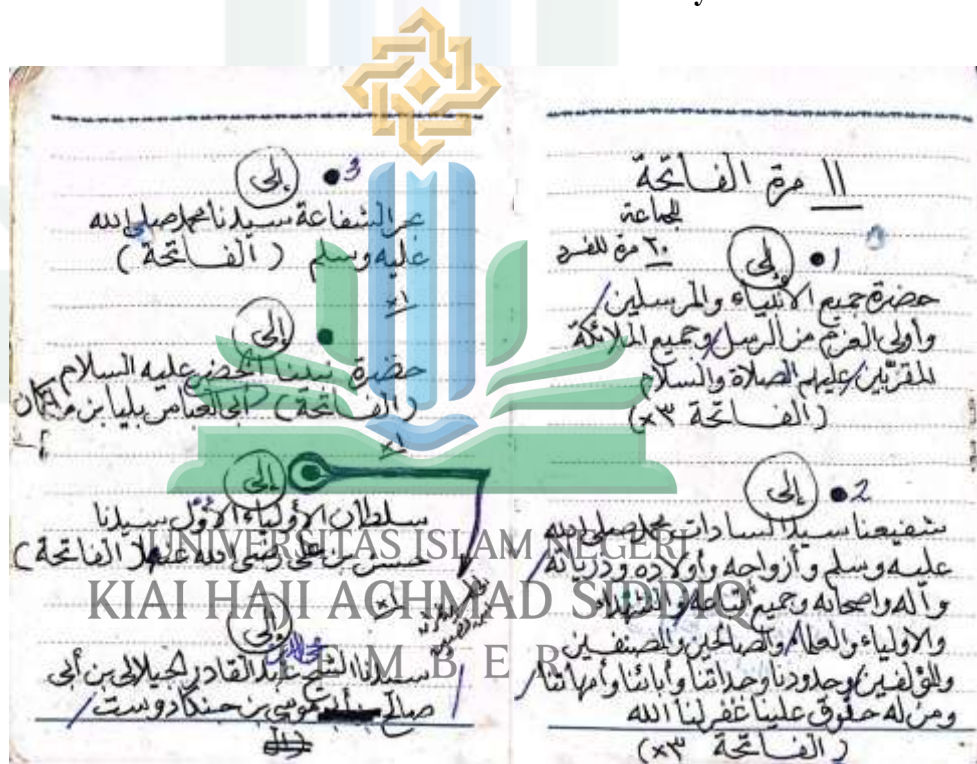 ١١ مرة الفاتحة
للجماعة
٢٠ مرة للفرد
1 إلى
حضرة جميع الأنبياء والمرسلين/
وأولى العزم من الرسل/وجميع الملائكة
المقربين/عليهم الصلاة والسلام
(الفاتحة ٣×)
2 إلى
شفيعنا سيد السادات محمد صلى الله
عليه وسلم وأزواجه وأولاده وذرياته/
وآله واصحابه وجميع أتباعه/والشهداء
والأولياء والعلماء/والصالحين والمصنفين
والمؤلفين/وجدودنا وجداتنا وأبائنا وأمهاتنا/
ومن له حقوق علينا غفر لنا الله
(الفاتحة ٣×)
3 إلى
بحر الشفاعة سيدنا محمد صلى الله
عليه وسلم (الفاتحة)
١×
إلى
حضرة نبينا الخضر عليه السلام
(الفاتحة) أبى العباس بليا بن ملكان
١×
إلى
سلطان الأولياء الأول سيدنا
حسن بن على رضى الله عنهما (الفاتحة)
١×
إلى
محي الدين
سيدنا الشيخ عبد القادر الجيلالى بن أبى
صالح موسى بن جنكادوست/
UNIVERSITAS ISLAM NEGERI
KIAI HAJI ACHMAD SIDDIQ
J E M B E R